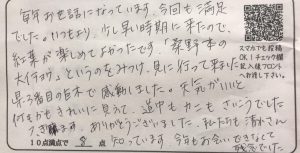 毎年お世話になっています。今回も満足
でした。いつもより、少し早い時期に来たので、
紅葉が楽しめてよかったです。「森野木の
大イチョウ」というのをみつけ、見に行って来ました
県3番目の巨木で感動しました。天気がいいと
何もかもきれいに見えて、道中もカンもさいこうでした
ありがとうございました。私たちも清水さん
10点満点で 8 点
知っています。今年もお会いできなくて
残念でした
スマホでも投稿
OK！チェック欄
記入後フロント
へお渡し下さい。